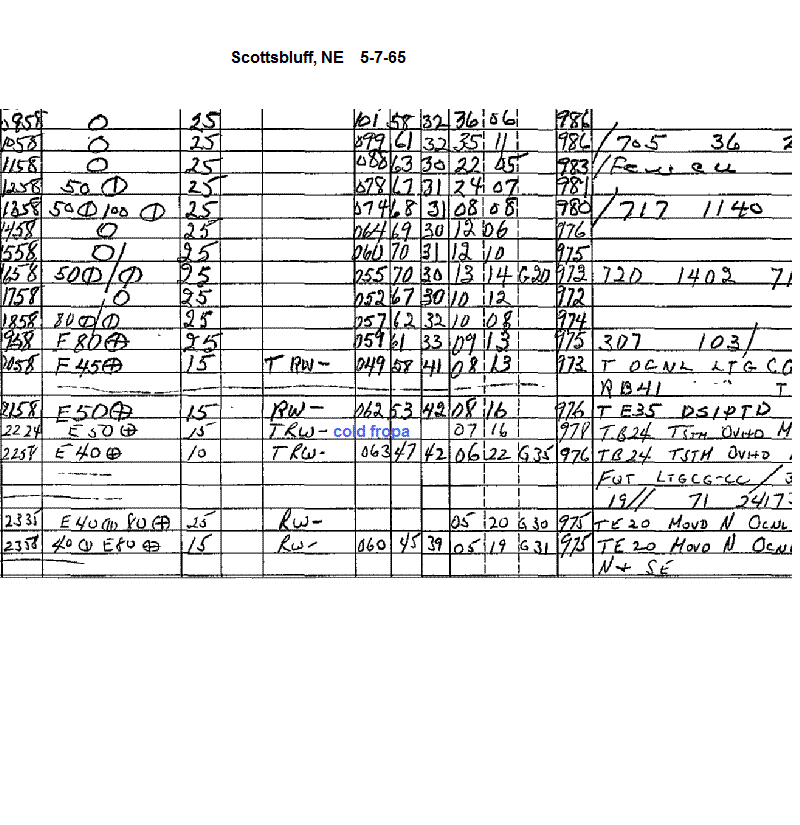 Scottsbluff, NE 5-7-65
0958 O 25 101 58 32 36 06 986
1058 O 25 099 61 32 35 11 986 /705 36 2
1158 O 25 088 63 30 22 05 983
1258 50 ⦶ 25 078 67 31 24 07 981
1358 50 ⦶ 100 ⦶ 25 074 68 31 08 08 980 /717 1140
1458 O 25 064 69 30 12 06 976
1558 O/ 25 060 70 31 12 10 975
1658 50⦶/⦶ 25 055 70 30 13 14 G20 973 720 1402 71
1758 O 25 052 67 30 10 12 972
1858 80⦶/⦶ 25 057 62 32 10 08 974
1958 E80⊕ 25 059 61 33 09 13 975 307 103/
2058 E45⊕ 15 TRW- 049 58 41 08 13 973 T OCNL LTG CG
RB41 T
2158 E50⊕ 15 RW- 062 53 42 08 16 976 TE35 DSIPTD
2224 E50⊕ 15 TRW- cold fropa 07 16 978 TB24 TSTM OVHD M
2258 E40⊕ 10 TRW- 063 47 42 06 22 G35 976 TB24 TSTM OVHD
FQT LTGCG-CC / 3
19// 71 2417
2335 E40⦶ 80⊕ 25 RW- 05 20 G30 975 TE20 MOVD N OCNL
2358 40⦶ E80⊕ 15 RW- 060 45 39 05 19 G31 975 TE20 MOVD N OCNL
N+ SE